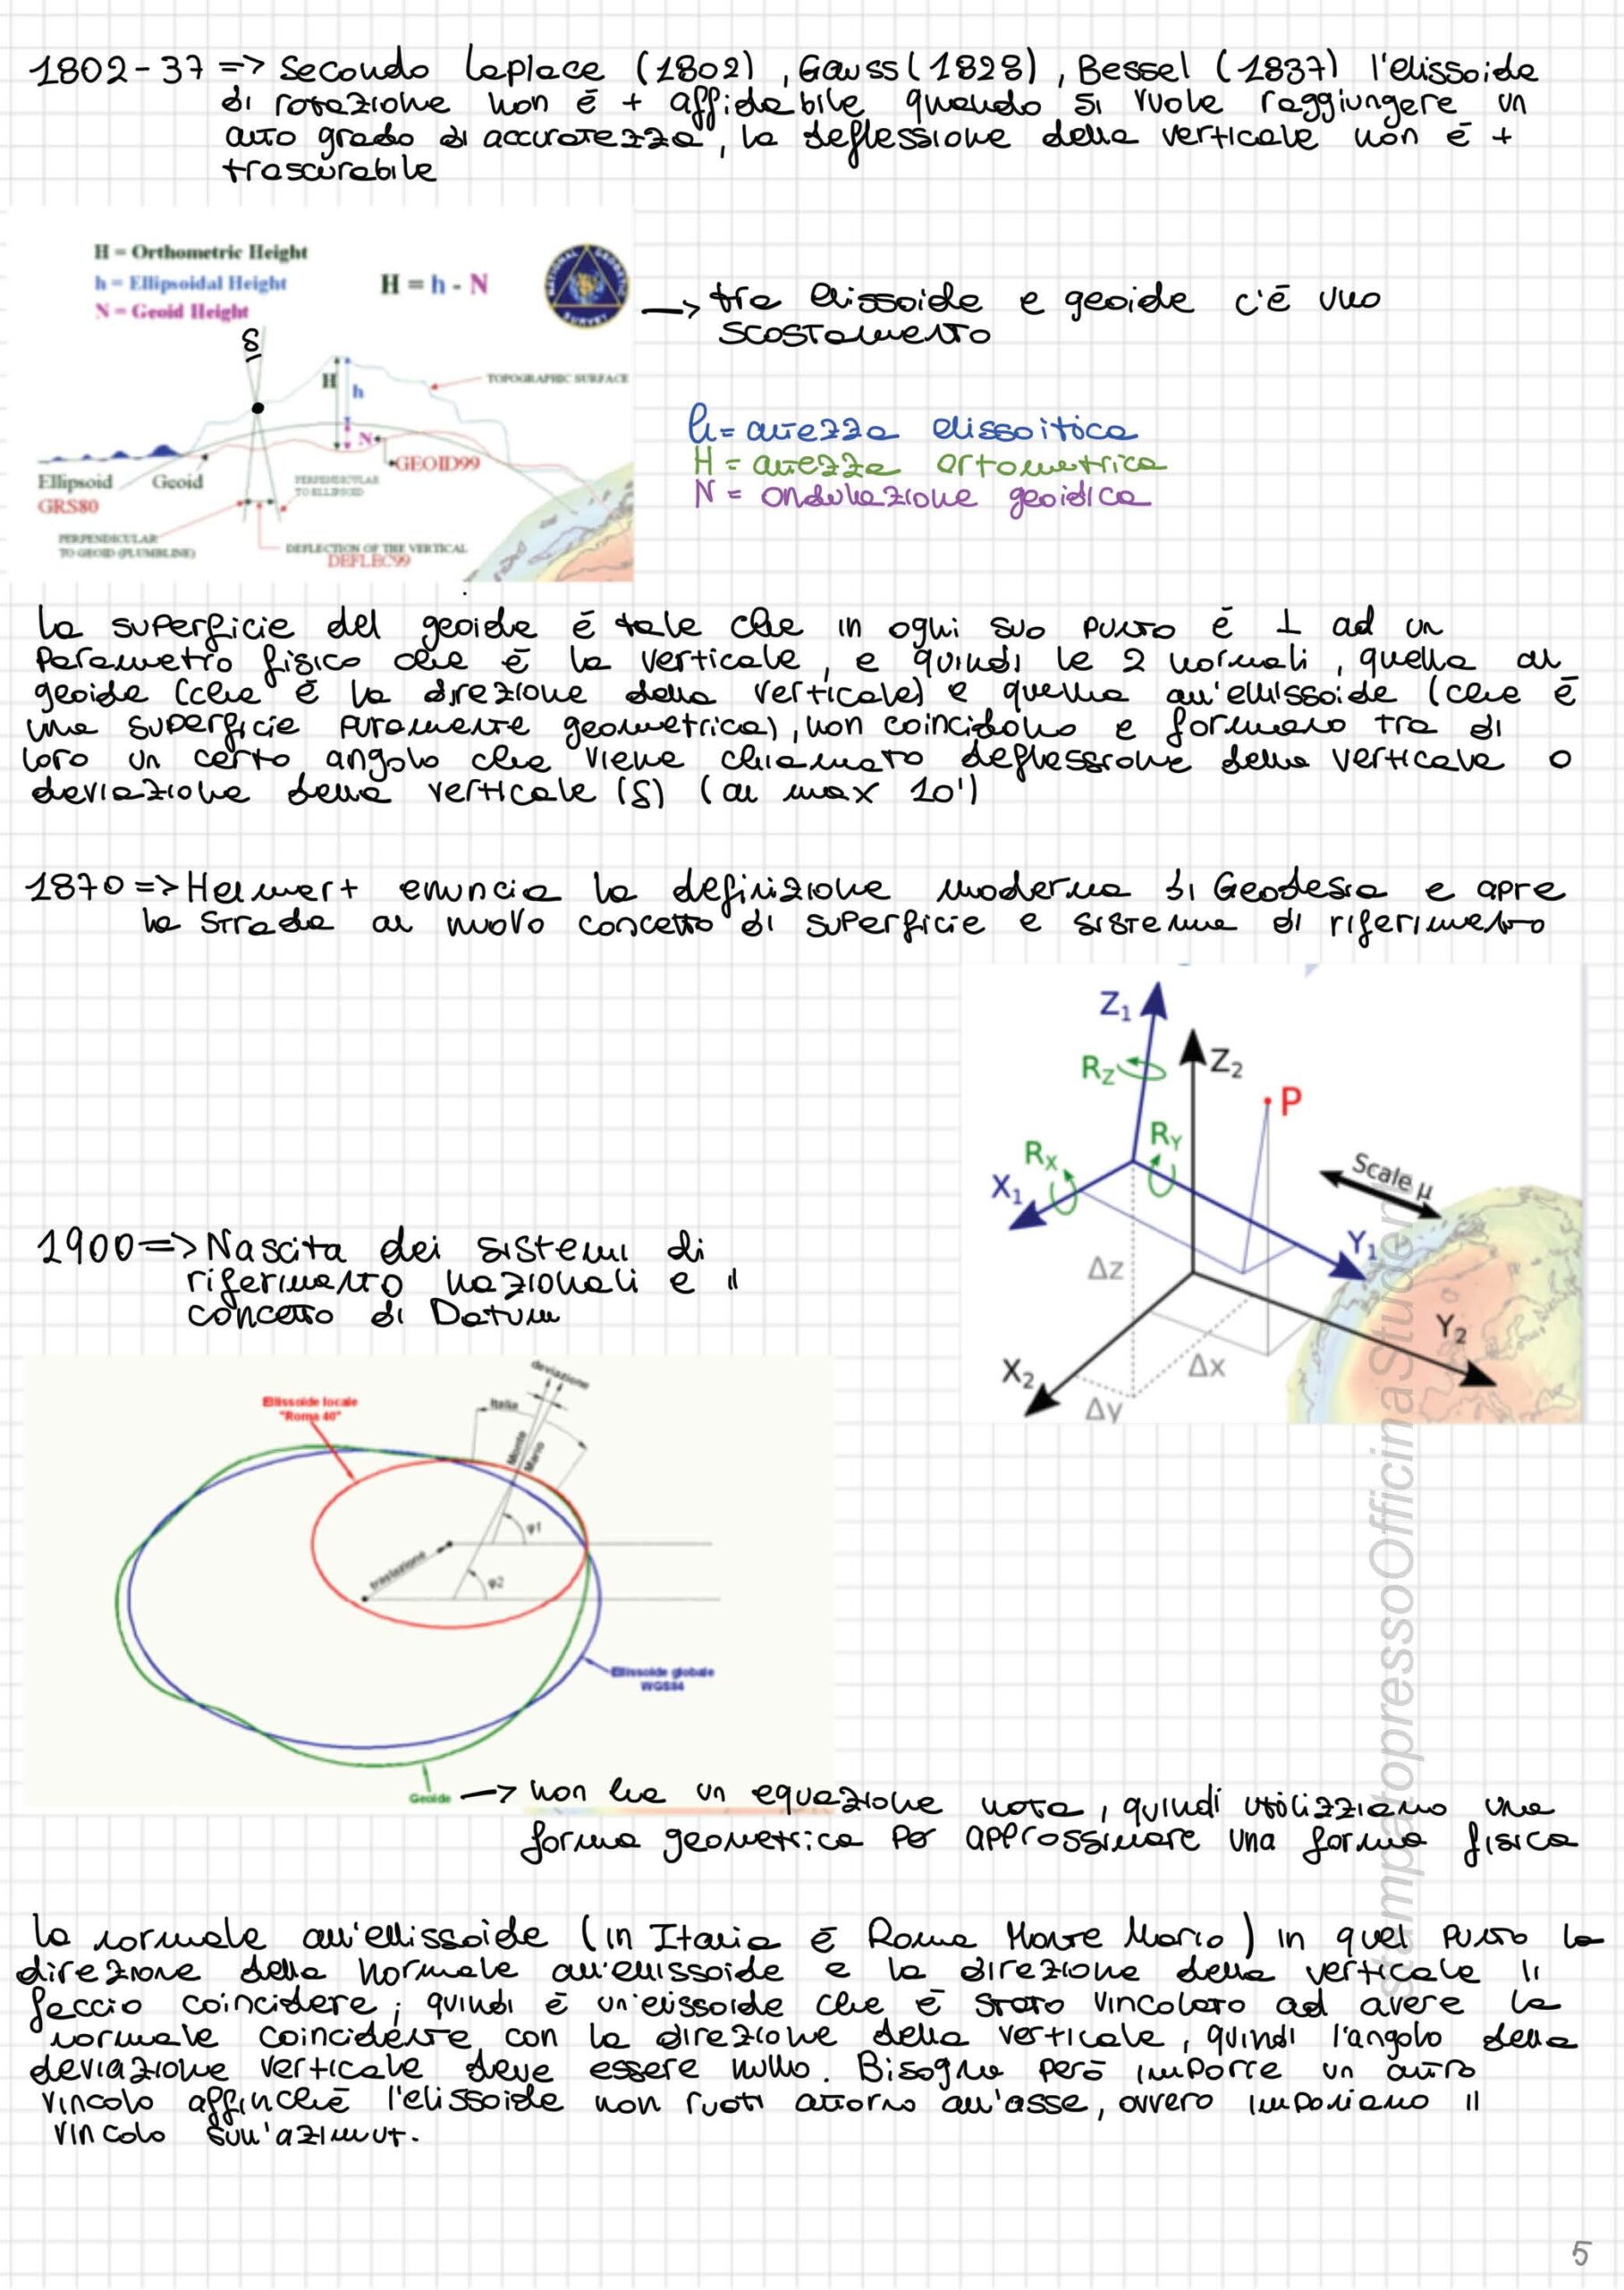 1802-37 => Secondo Laplace (1802), Gauss (1828), Bessel (1837) l'elissoide
di rotazione non è + affidabile quando si vuole raggiungere un
alto grado di accuratezza, la deflessione della verticale non è +
trascurabile
H = Orthometric Height
h = Ellipsoidal Height
H = h - N
N = Geoid Height
NATIONAL GEODETIC SURVEY
→ tra elissoide e geoide c'è uno
scostamento
δ
H
h
N
TOPOGRAPHIC SURFACE
h = altezza elissoitica
H = altezza ortometrica
N = ondulazione geoidica
GEOID99
Ellipsoid
Geoid
PERPENDICULAR
TO ELLIPSOID
GRS80
PERPENDICULAR
TO GEOID (PLUMBLINE)
DEFLECTION OF THE VERTICAL
DEFLEC99
La superficie del geoide è tale che in ogni suo punto è ⊥ ad un
parametro fisico che è la verticale, e quindi le 2 normali, quella al
geoide (che è la direzione della verticale) e quella all'ellissoide (che è
una superficie puramente geometrica), non coincidono e formano tra di
loro un certo angolo che viene chiamato deflessione della verticale o
deviazione della verticale (δ) (al max 10')
1870 => Helmert enuncia la definizione moderna di Geodesia e apre
la strada al nuovo concetto di superficie e sistema di riferimento
Z1
Z2
RZ
P
RY
RX
X1
Scale µ
Y1
Δz
Y2
X2
Δx
Δy
1900 => Nascita dei sistemi di
riferimento nazionali e il
concetto di Datum
deviazione
Ellissoide locale
"Roma 40"
Italia
Monte
Mario
φ1
traslazione
φ2
Ellissoide globale
WGS84
Geoide → non ha un equazione nota, quindi utilizziamo una
forma geometrica per approssimare una forma fisica
La normale all'ellissoide (in Italia è Roma Monte Mario) in quel punto la
direzione della normale all'ellissoide e la direzione della verticale li
faccio coincidere; quindi è un'elissoide che è stato vincolato ad avere la
normale coincidente con la direzione della verticale, quindi l'angolo della
deviazione verticale deve essere nullo. Bisogna però imporre un altro
vincolo affinché l'elissoide non ruoti attorno all'asse, ovvero imponiamo il
vincolo sull'azimut.
StampatopressoOfficinaStudenti
5